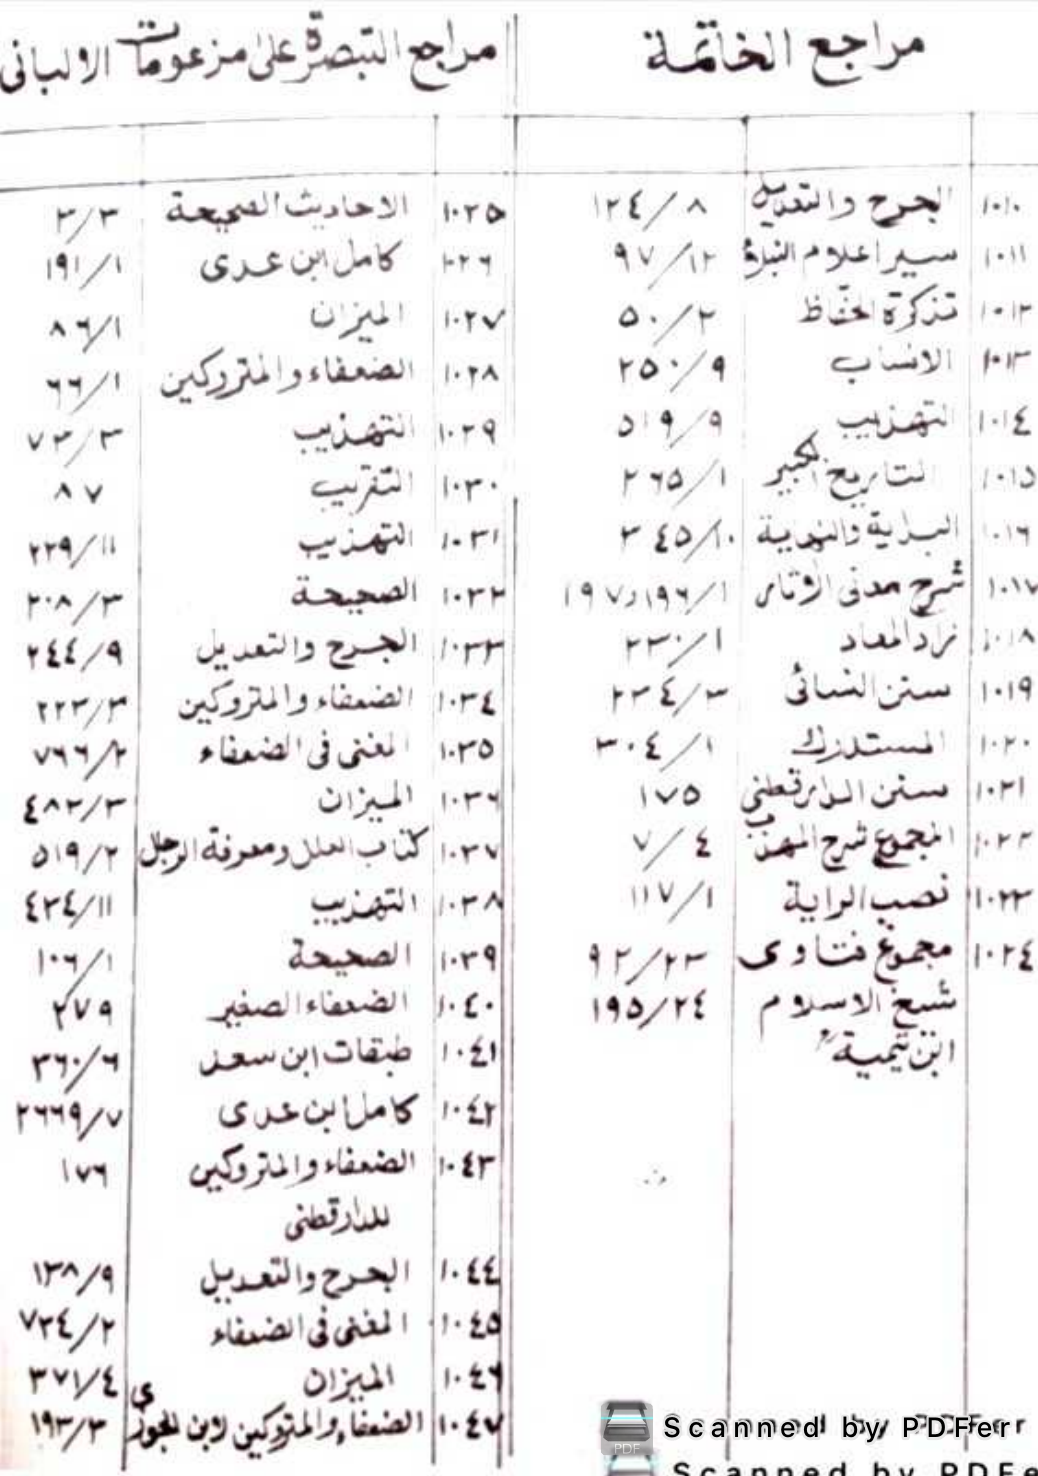 مراجع الخاتمة
١٠١٠ الجرح والتعديل ٨/١٢٤
١٠١١ سير اعلام النبلاء ١٢/٩٧
١٠١٢ تذكرة الحفّاظ ٢/٥٠
١٠١٣ الانساب ٩/٢٥٠
١٠١٤ التهذيب ٩/٥١٩
١٠١٥ التاريخ الكبير ١/٢٦٥
١٠١٦ البداية والنهاية ١٠/٣٤٥
١٠١٧ شرح معانى الآثار ١/١٩٦، ١٩٧
١٠١٨ زاد المعاد ١/٢٣٠
١٠١٩ سنن النسائى ٣/٢٣٤
١٠٢٠ المستدرك ١/٣٠٤
١٠٢١ سنن الدارقطني ١٧٥
١٠٢٢ المجموع شرح المهذب ٤/٧
١٠٢٣ نصب الراية ١/١١٧
١٠٢٤ مجموع فتاوى ٢٣/٩٢
شيخ الاسلام ٢٤/١٩٥
ابن تيمية
مراجع التبصرة على مزعومات الالبانى
١٠٢٥ الاحاديث الصحيحة ٣/٣
١٠٢٦ كامل ابن عدى ١/١٩١
١٠٢٧ الميزان ١/٨٦
١٠٢٨ الضعفاء والمتروكين ١/٦٦
١٠٢٩ التهذيب ٣/٧٣
١٠٣٠ التقريب ٨٧
١٠٣١ التهذيب ١١/٢٢٩
١٠٣٢ الصحيحة ٣/٢٠٨
١٠٣٣ الجرح والتعديل ٩/٢٤٤
١٠٣٤ الضعفاء والمتروكين ٣/٢٢٣
١٠٣٥ المغنى فى الضعفاء ٢/٧٦٦
١٠٣٦ الميزان ٣/٤٨٢
١٠٣٧ كتاب العلل ومعرفة الرجال ٢/٥١٩
١٠٣٨ التهذيب ١١/٤٣٤
١٠٣٩ الصحيحة ١/١٠٦
١٠٤٠ الضعفاء الصغير ٢٧٩
١٠٤١ طبقات ابن سعد ٦/٣٦٠
١٠٤٢ كامل ابن عدى ٧/٢٦٦٩
١٠٤٣ الضعفاء والمتروكين ١٧٦
للدارقطنى
١٠٤٤ الجرح والتعديل ٩/١٣٨
١٠٤٥ المغنى فى الضعفاء ٢/٧٣٤
١٠٤٦ الميزان ٤/٣٧١
١٠٤٧ الضعفاء والمتروكين لابن الجوزي ٣/١٩٣
PDF
Scanned by PDFerr
Scanned by PDFe